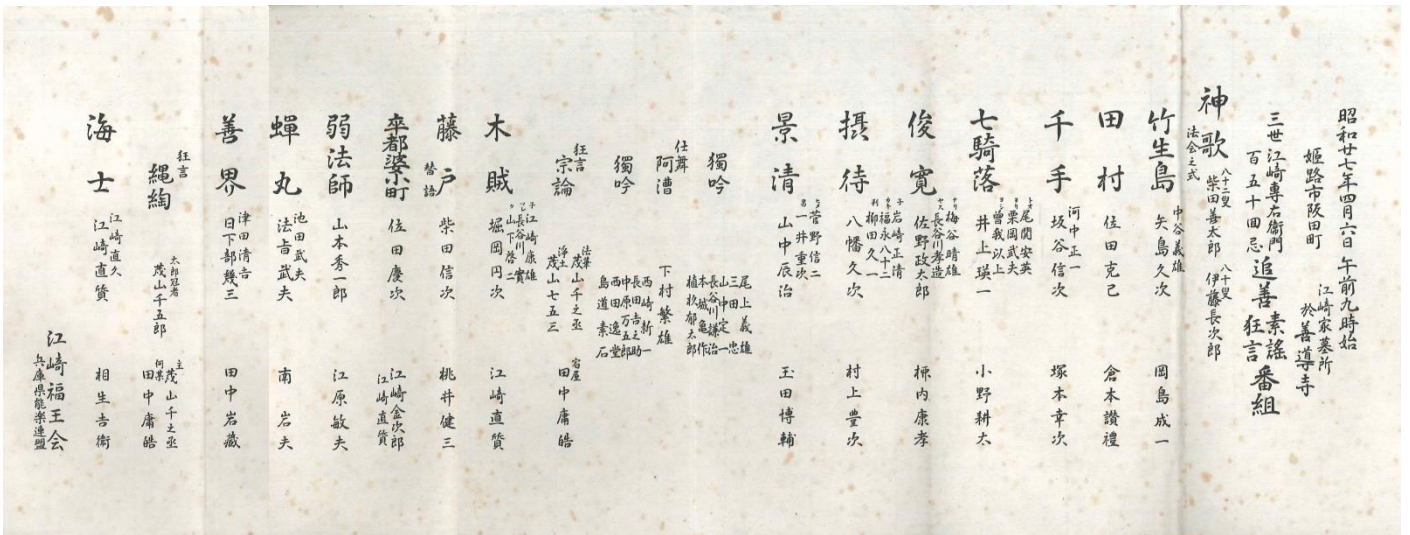 昭和廿七年四月六日午前九時始
姫路市阪田町 江崎家墓所
於善導寺
三世江崎專右衛門
百五十回忌
追善
素謠
狂言
番組
神歌
法会之式
八十二叟
柴田善太郎
八十叟
伊藤長次郎
竹生島
中谷義雄
矢島久次
岡島成一
田村
佐田克己
倉本讃禮
千手
河中正一
坂谷信次
塚本幸次
七騎落
尾関安英
栗岡武夫
曽我以上
井上瑛一
小野耕太
俊寛
梅谷晴雄
長谷川孝造
佐野政太郎
柳内康孝
摂待
岩崎正清
福永八十二
柳田久一
八幡久次
村上豊次
景清
菅野信二
一井重次
山中辰治
玉田博輔
獨吟
尾上義雄
三田忠
山中定一
長谷川謙治
本城亀作
植杉郁太郎
仕舞
阿漕
下村繁雄
獨吟
西崎新一
長田吉之助
中原万五郎
西田逸堂
島道素石
狂言
宗論
法華
茂山千之丞
浄土
茂山七五三
宿屋
田中庸皓
木賊
江崎康雄
長谷川實
山下啓二
堀岡円次
江崎直質
藤戸
替語
柴田信次
桃井健三
卒都婆小町
佐田慶次
江崎金次郎
江崎直質
弱法師
山本秀一郎
江原敏夫
蟬丸
池田武夫
法吉武夫
南岩夫
善界
津田清吉
日下部幾三
田中岩藏
狂言
縄綯
太郎冠者
茂山千五郎
主
茂山千之丞
何某
田中庸皓
海士
江崎直久
江崎直質
相生吉衛
江崎福王会
兵庫県能楽連盟